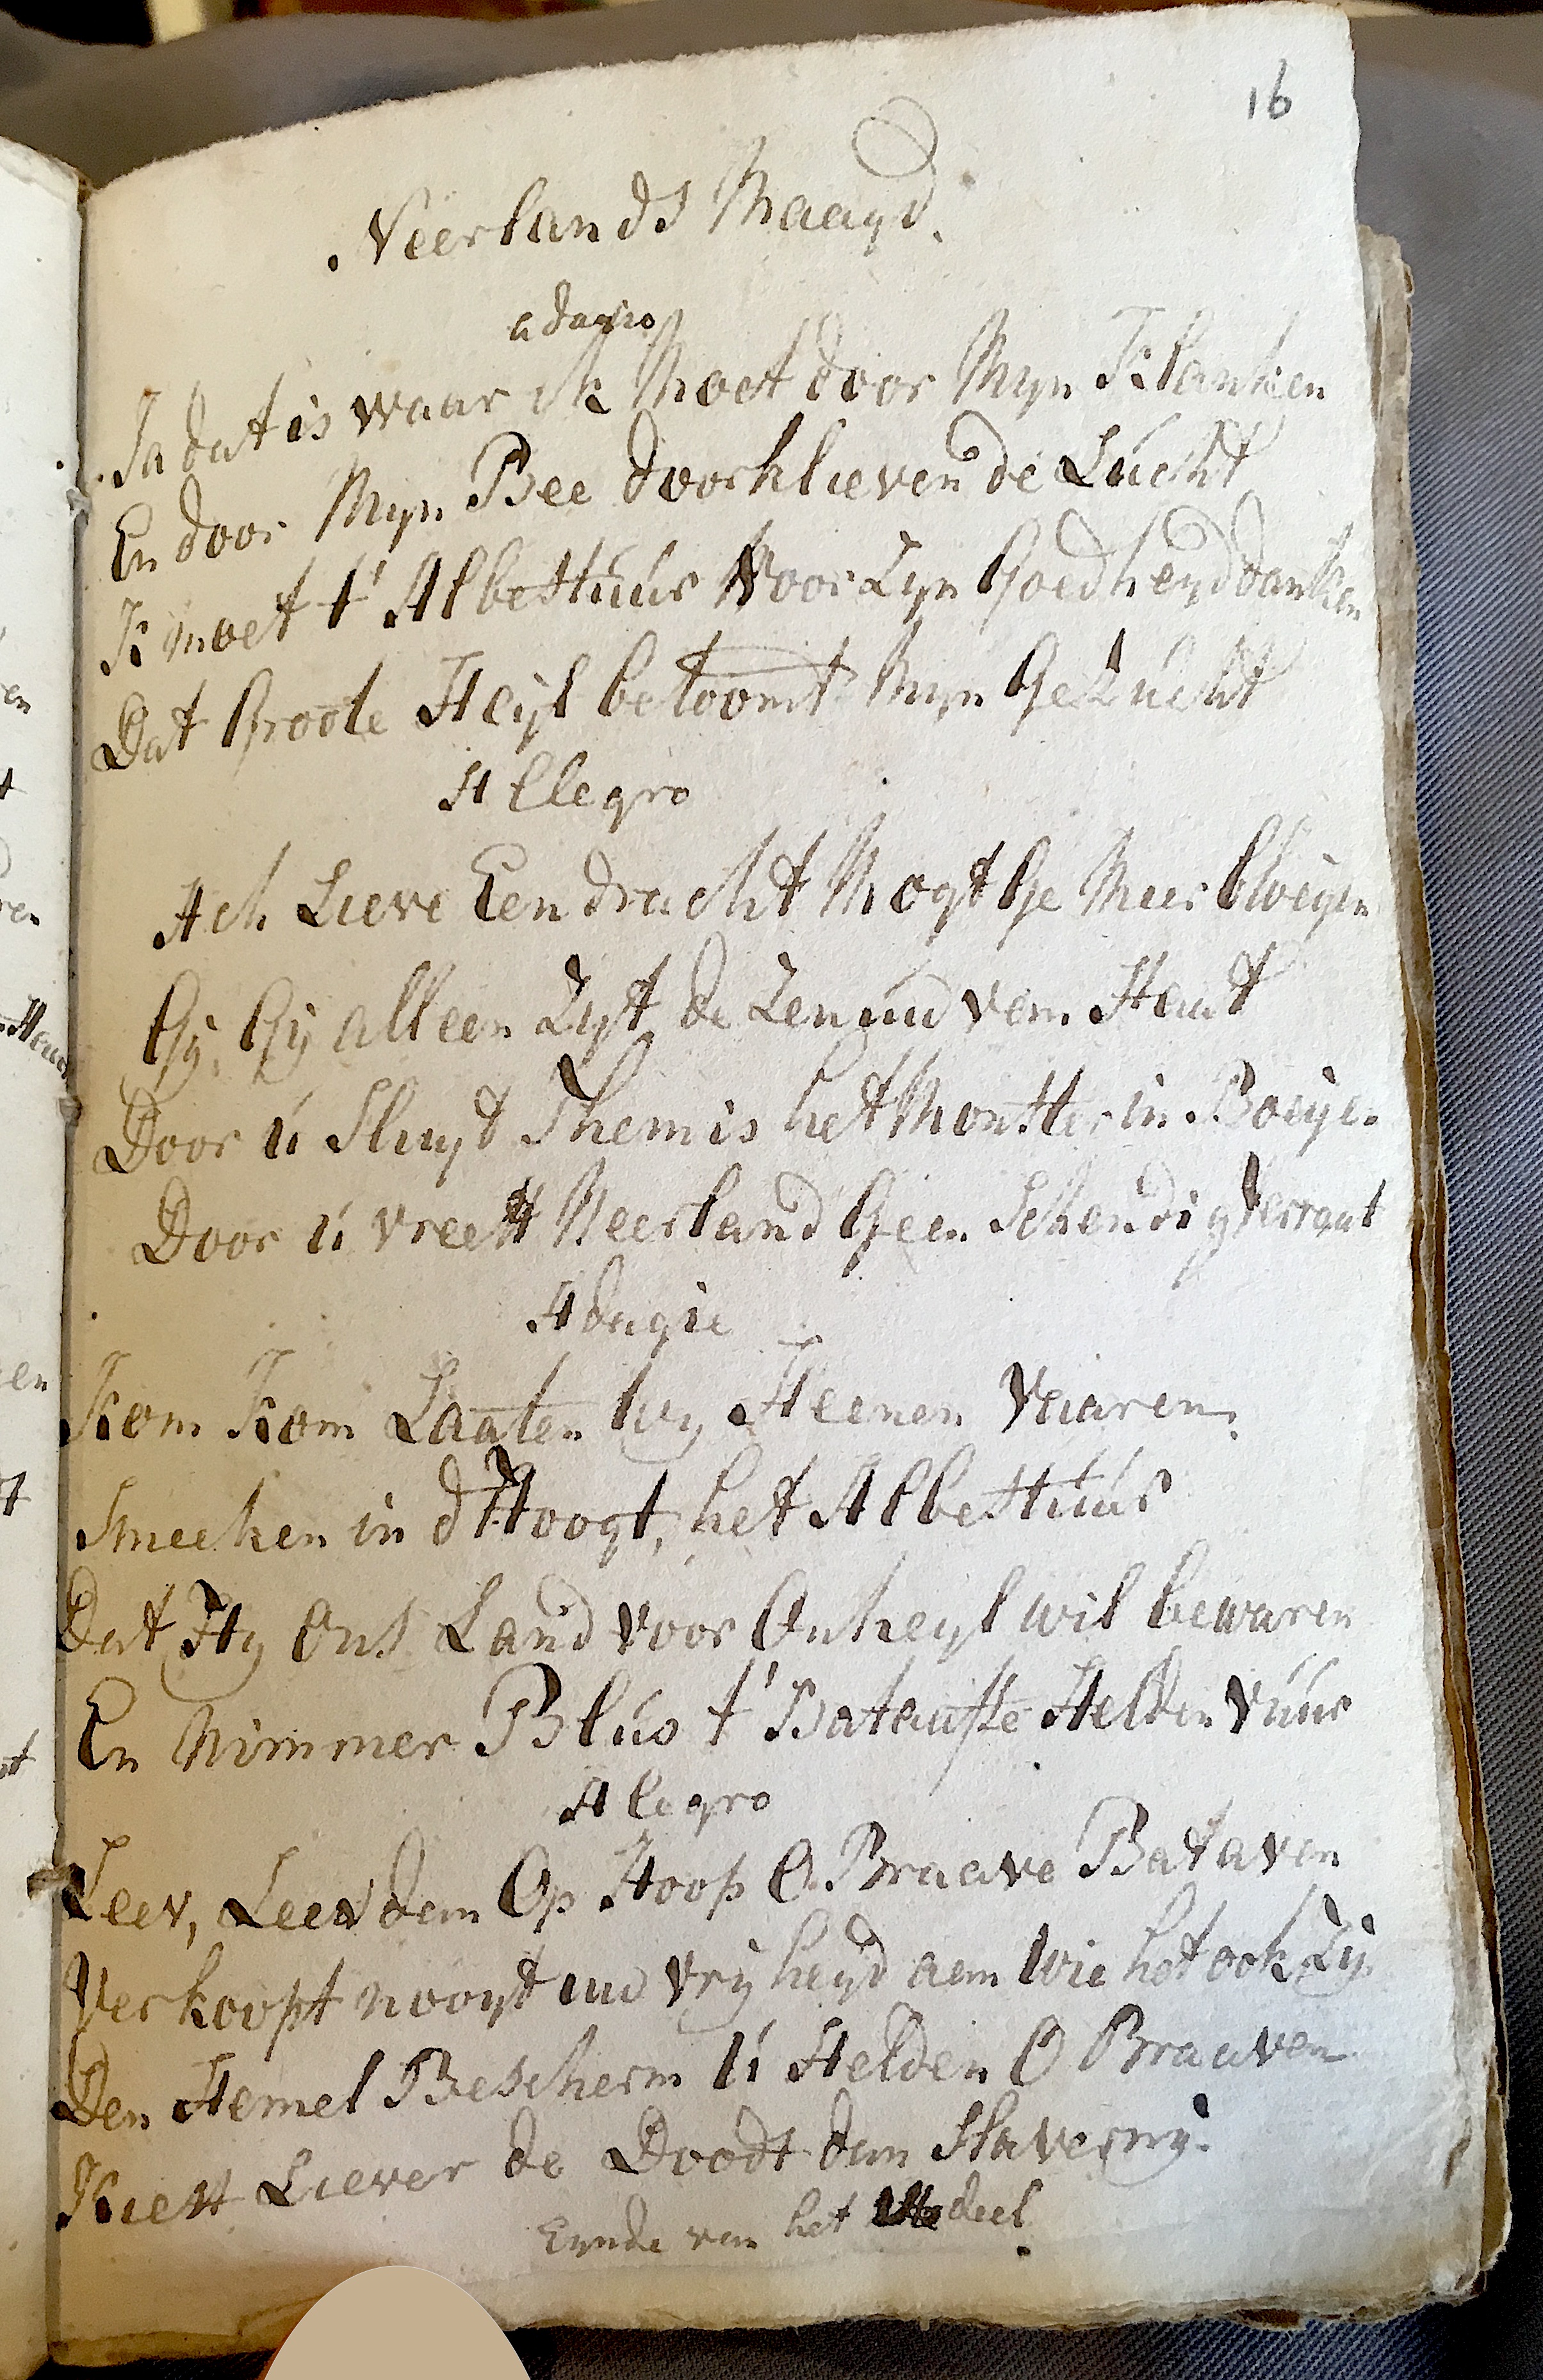 16
Neerlands Maagd.
adagio
Ja dat is waar ik Moet door Myn Klanken
En door Myn Bee doorklieven de Lúcht
K moet t' Albestúúr Voor Zyn Goedheyd danken
Dat Groote Heyl betoomt Myn Gezúcht
Allegro
Ach Lieve Eendracht Mogt Ge Meer bloeyen
Gy, Gy alleen Zyt de Zenuw van Staat
Door ú Sluyt Themis het Monster in Boeyen
Door ú vreest Neerland Geen Schendig Verraat
Adagie
Kom Kom Laaten wy Heenen Vaaren
Smeeken in d'Hoogt, het Albestúúr
Dat Hy Ons Land voor Onheyl wil bewaren
En Nimmer Blús t' Bataafse Helden Vúúr
Alegro
Leev, Leev dan Op Hoop O Braave Bataven
Verkoopt nooyt uw vryheyd aan Wie het ook Zy.
Den Hemel Bescherm ú Helden O Braaven
Kiest Liever de Doodt dan Slaverny.
Eynde van het deel